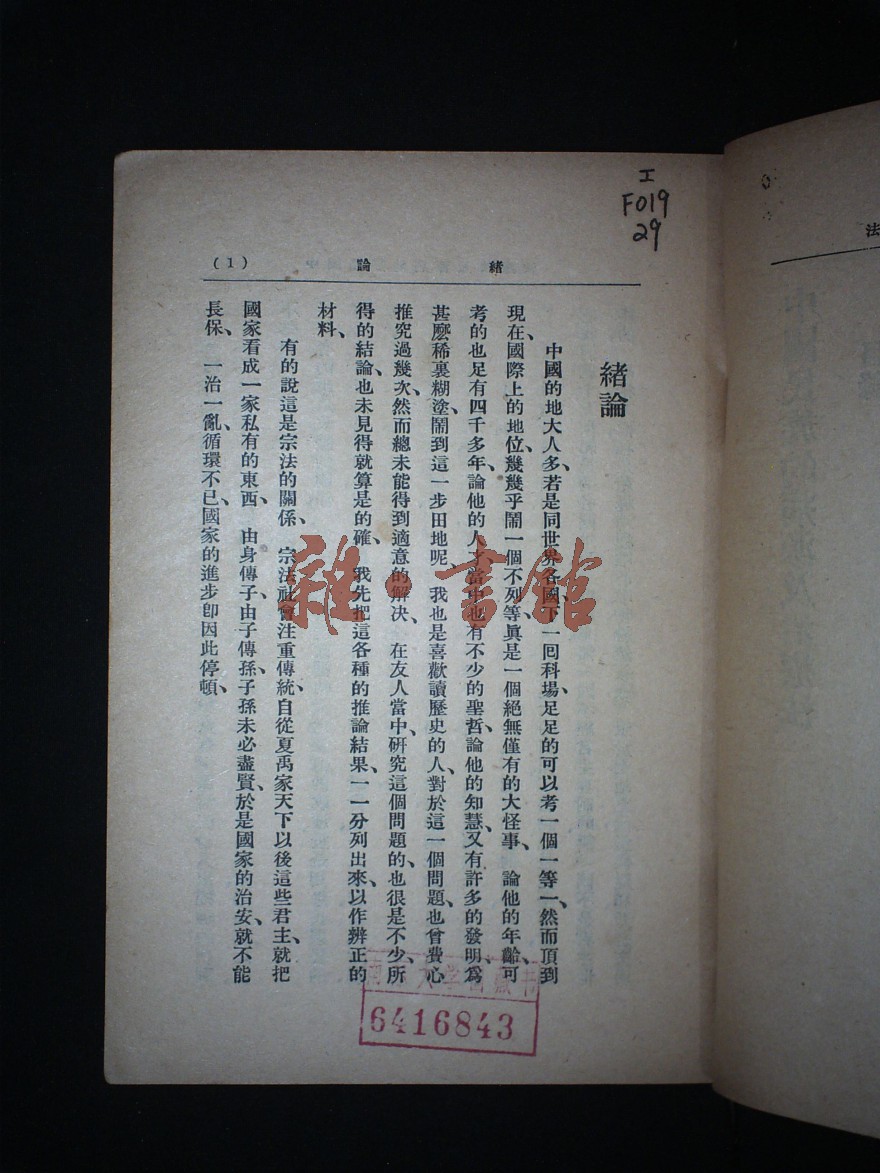 工
F019
29
緒　論　(1)
緒論
中國的地大人多、若是同世界各國、下一囘科場、足足的可以考一個一等一、然而頂到
現在、國際上的地位、幾幾乎鬧一個不列等、眞是一個絕無僅有的大怪事、論他的年齡、可
考的也足有四千多年、論他的人才、當中也有不少的聖哲、論他的知慧、又有許多的發明、爲
甚麽稀裏糊塗、鬧到這一步田地呢、我也是喜歡讀歷史的人、對於這一個問題、也曾費心
推究過幾次、然而總未能得到適意的解决、在友人當中、硏究這個問題的、也很是不少、所
得的結論、也未見得就算是的確、我先把這各種的推論結果、一一分列出來、以作辨正的
材料、
有的說這是宗法的關係、宗法社會注重傳統、自從夏禹家天下以後、這些君主、就把
國家看成一家私有的東西、由身傳子、由子傳孫、子孫未必盡賢、於是國家的治安、就不能
長保、一治一亂、循環不已、國家的進步卽因此停頓、
雜·書館
6416843
法